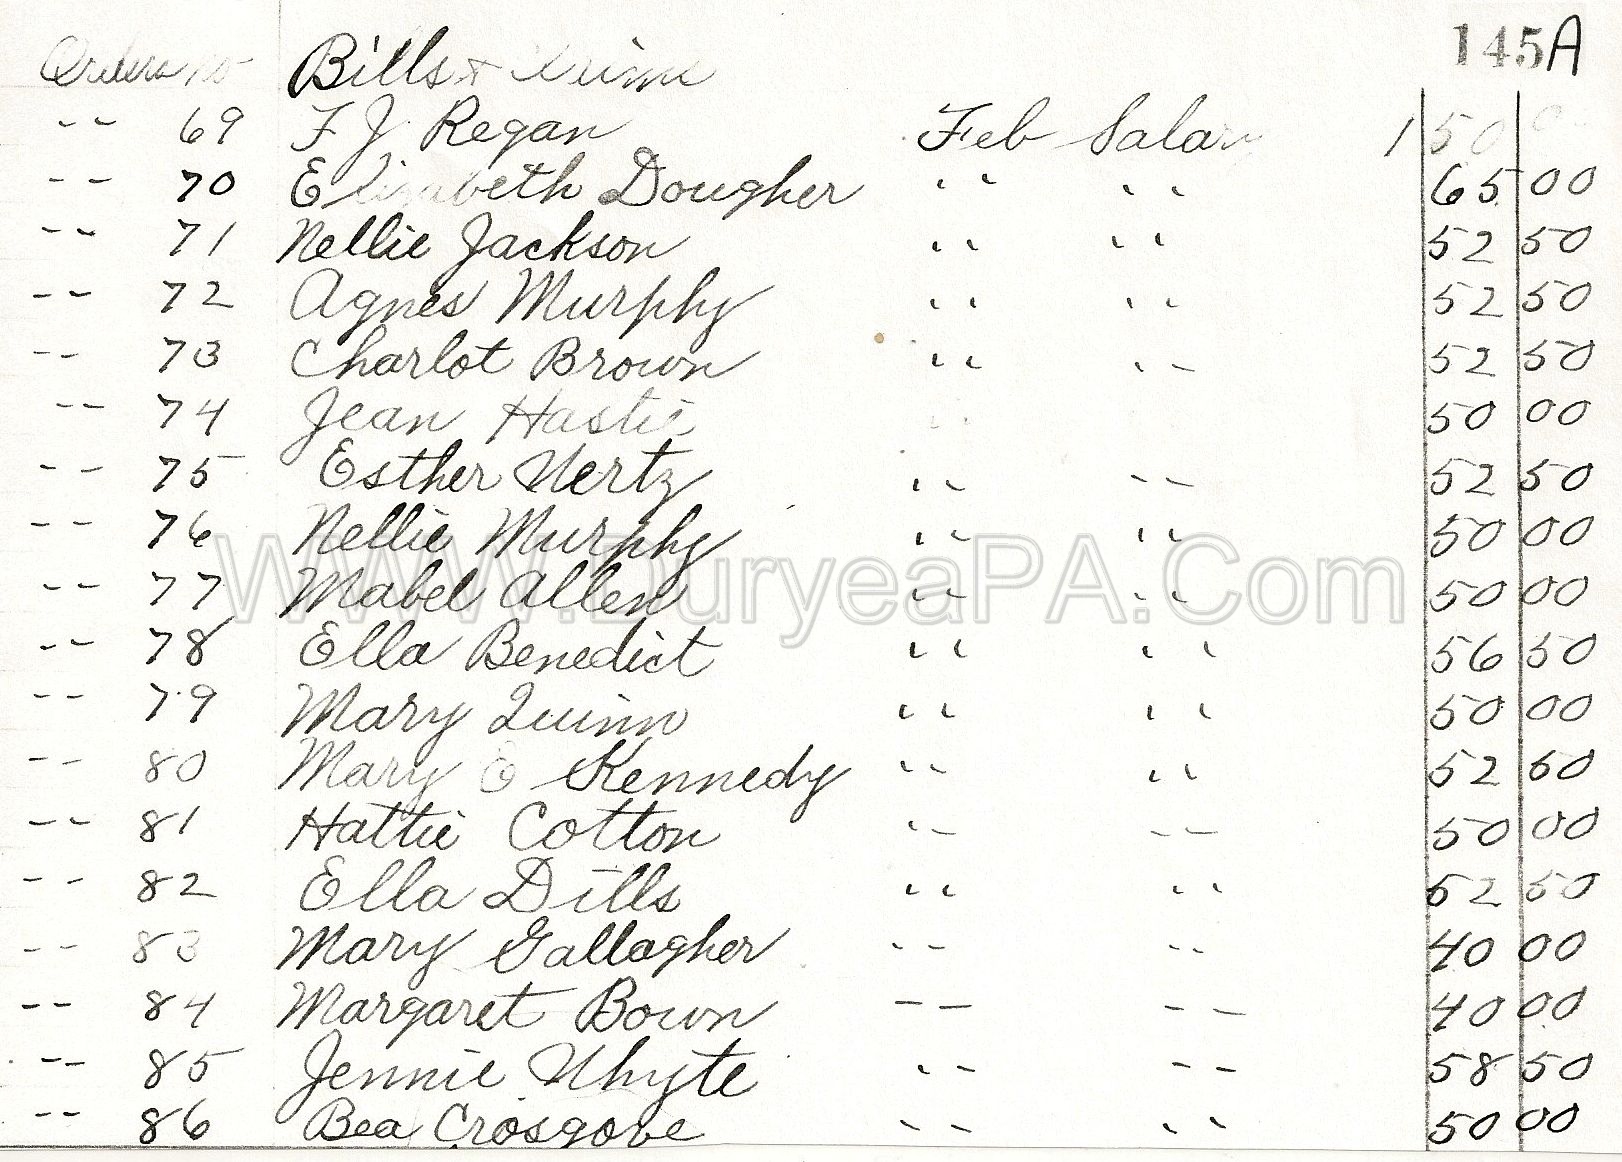 145A
Orders no Bills &
-- 69 F J Regan Feb Salary 1 50
-- 70 Elizabeth Dougher " " 65 00
-- 71 Nellie Jackson " " 52 50
-- 72 Agnes Murphy " " 52 50
-- 73 Charlot Brown " " 52 50
-- 74 Jean Hastie " 50 00
-- 75 Esther Wertz " -- 52 50
-- 76 Nellie Murphy " " 50 00
-- 77 Mabel Allen " " 50 00
WWW.DuryeaPA.Com
-- 78 Ella Benedict " " 56 50
-- 79 Mary Quinn " " 50 00
-- 80 Mary E Kennedy " " 52 50
-- 81 Hattie Cotton " -- 50 00
-- 82 Ella Dills " " 52 50
-- 83 Mary Gallagher -- -- 40 00
-- 84 Margaret Bown -- -- 40 00
-- 85 Jennie Whyte -- -- 58 50
-- 86 Bea Crosgove -- " 50 00